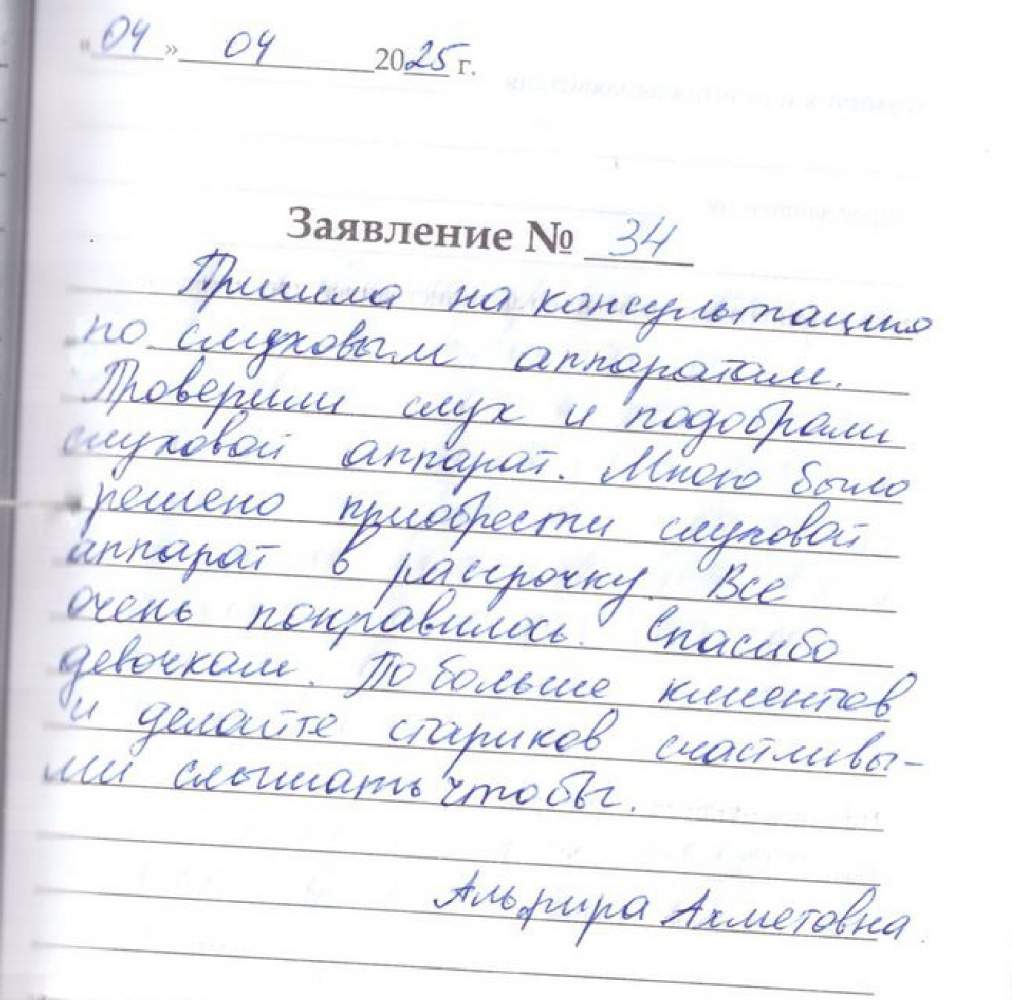 «04» 04 2025 г.
Заявление № 34
Пришла на консультацию
по слуховым аппаратам.
Проверили слух и подобрали
слуховой аппарат. Мною было
решено приобрести слуховой
аппарат в рассрочку. Все
очень понравилось. Спасибо
девочкам. По больше клиентов
и делайте стариков счастливы-
ми слышать чтобы.
Альфира Ахметовна